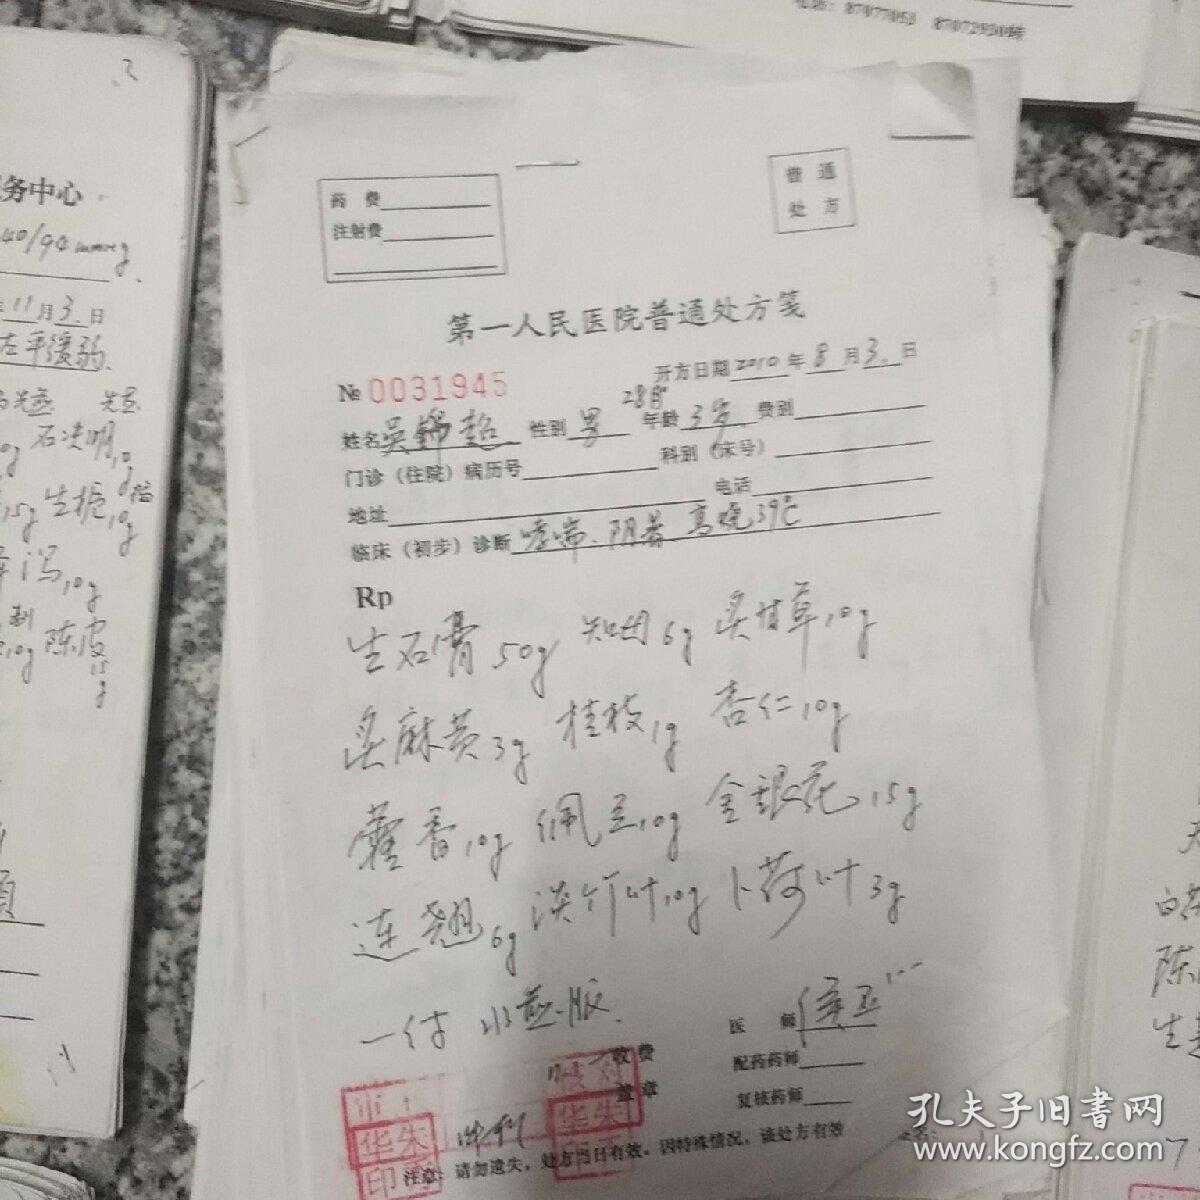 电话：87077053 8707293098
务中心
40/94mmHg
11月3日
左平缓弱
石决明10g
15g 生栀10g
泻10g
10g 陈皮15g
药 费
注射费
普 通
处 方
第一人民医院普通处方笺
№ 0031945
开方日期 2010 年 8 月 3 日
28月
姓名 吴锦超 性别 男 年龄 3岁 费别
门诊（住院）病历号 科别（床号）
地址 电话
临床（初步）诊断 哮喘、阴暑 高烧39℃
Rp
生石膏50g 知母6g 炙甘草10g
炙麻黄3g 桂枝1g 杏仁10g
藿香10g 佩兰10g 金银花15g
连翘6g 淡竹叶10g 卜荷叶3g
一付 水煎服
医 师
收费
盖章
配药药师
复核药师
华朱
印
华朱
印
注意：请勿遗失，处方当日有效，因特殊情况，该处方有效
陈
生
孔夫子旧书网
www.kongfz.com